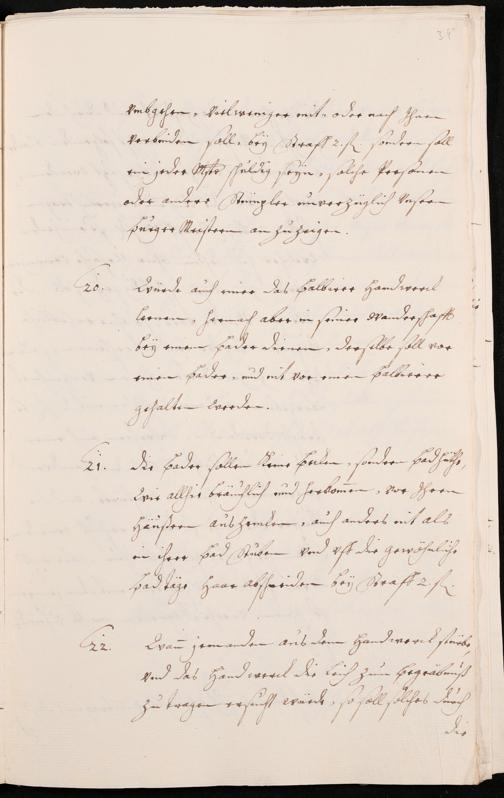 39
umbgehen, vielweniger mit- oder nach Ihnen
verbinden soll, beÿ Straff 2. fl. sondern soll
ein jeder Mstr schuldig seyn, solche Personen
oder andere Stümpler unverzüglich Unsern
Burger Meistern anzuzeigen.
20. Würde auch einer das Balbierer Handwerck
lernen, hernach aber in seiner Wanderschafft
beÿ einem Bader dienen, derselbe soll vor
einen Bader, und nit vor einen Balbierer
gehalten werden.
21. Die Bader sollen keine Beken, sondern Badhüthe,
wie allhie bräuchlich und herkom̄en, vor Ihren
Häußern aushencken, auch anders nit als
in ihrer Bad Stuben und uff die gewöhnliche
Badtäge Haar abschneiden beÿ Straff 2. fl.
22. Wan̄ jemanden aus dem Handwerck stürbe,
und das Handwerck die Leich zum Begräbnüß
zu tragen ersucht würde, so soll solches durch
die